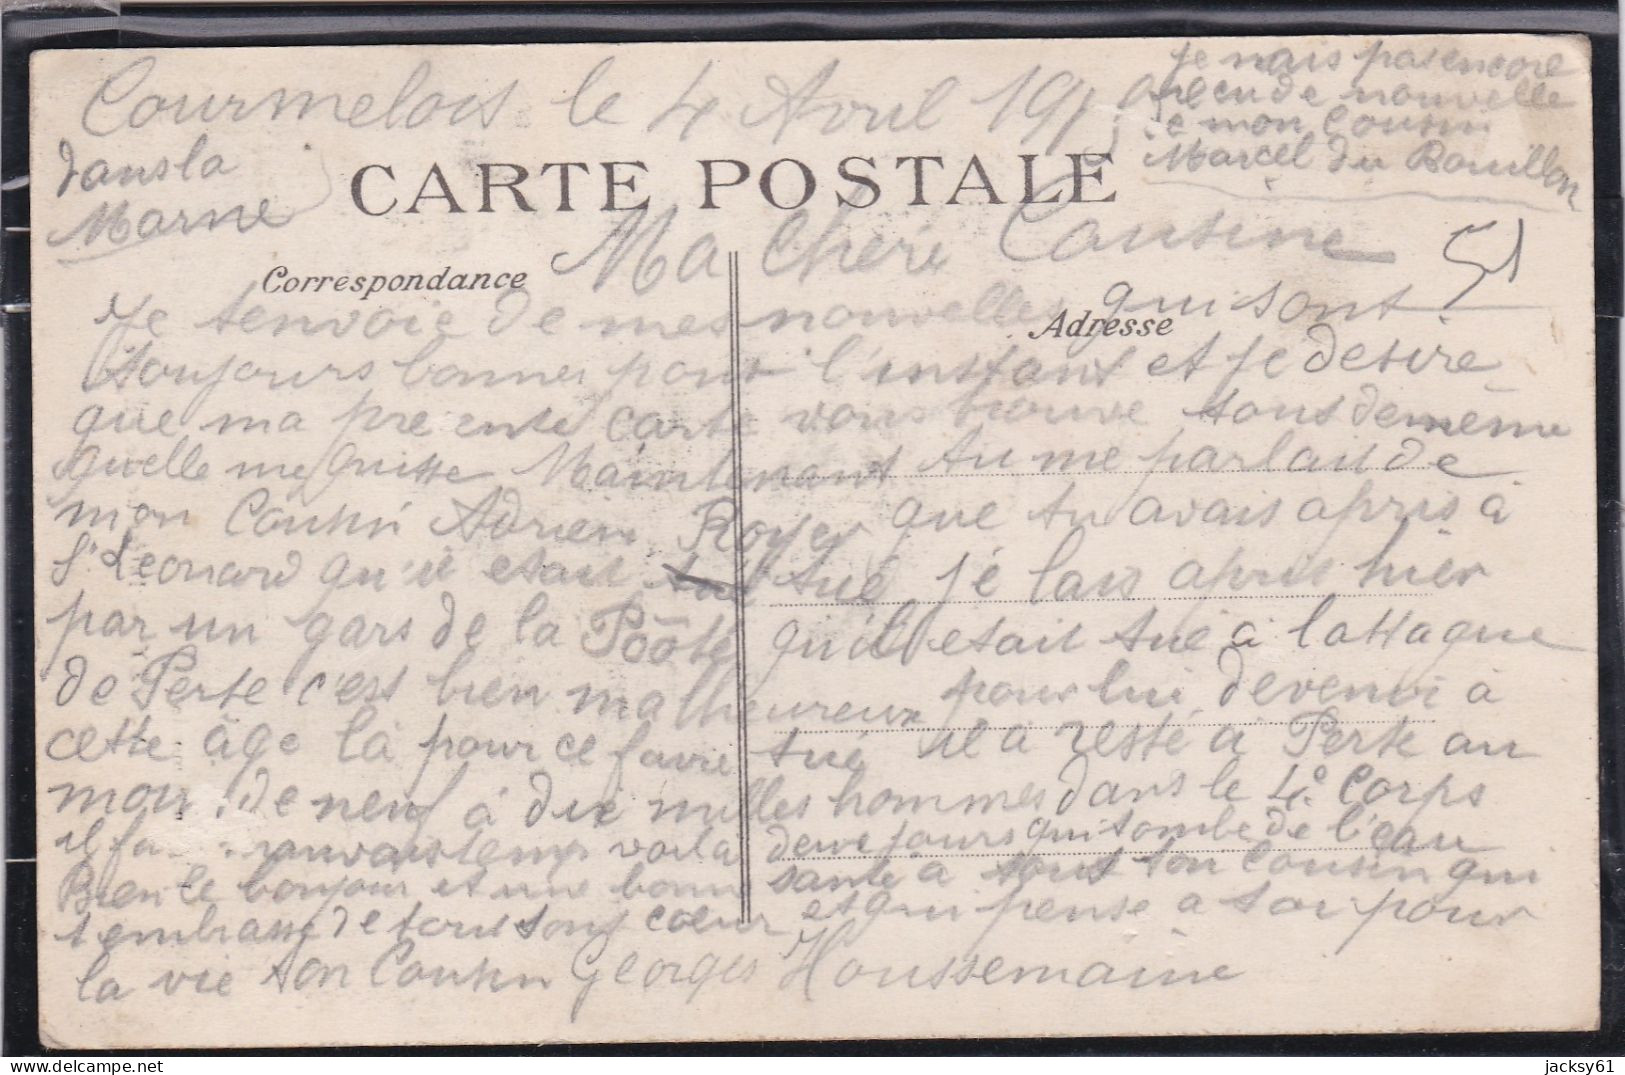 Courmelois le 4 Avril 191
dans la
Marne
je nais pas encore
recu de nouvelle
de mon Cousin
Marcel du Bouillon
CARTE POSTALE
Ma Chère Cousine
51
Correspondance
Adresse
Je tenvoie de mes nouvelles qui sont
toujours bonnes pour l'instant et je desire
que ma presente carte vous trouve tous de même
quelle me quitte Maintenant tu me parlais de
mon Cousin Adrien Royer que tu avais apris à
St Leonard qu'il etait tué je lais apris hier
par un gars de la Pôôté qu'il etait tué à lattaque
de Perte c'est bien malheureux pour lui devenir à
cette âge là pour ce faire tué il a resté à Perte au
moin de neuf à dix milles hommes dans le 4e Corps
il fa mauvais temps voila deux jours qui tombe de l'eau
Bien le bonjour et une bonne santé à tous ton Cousin qui
t'embrasse de tout son coeur et qui pense a toi pour
la vie ton Cousin Georges Houssemaine
jacksy61